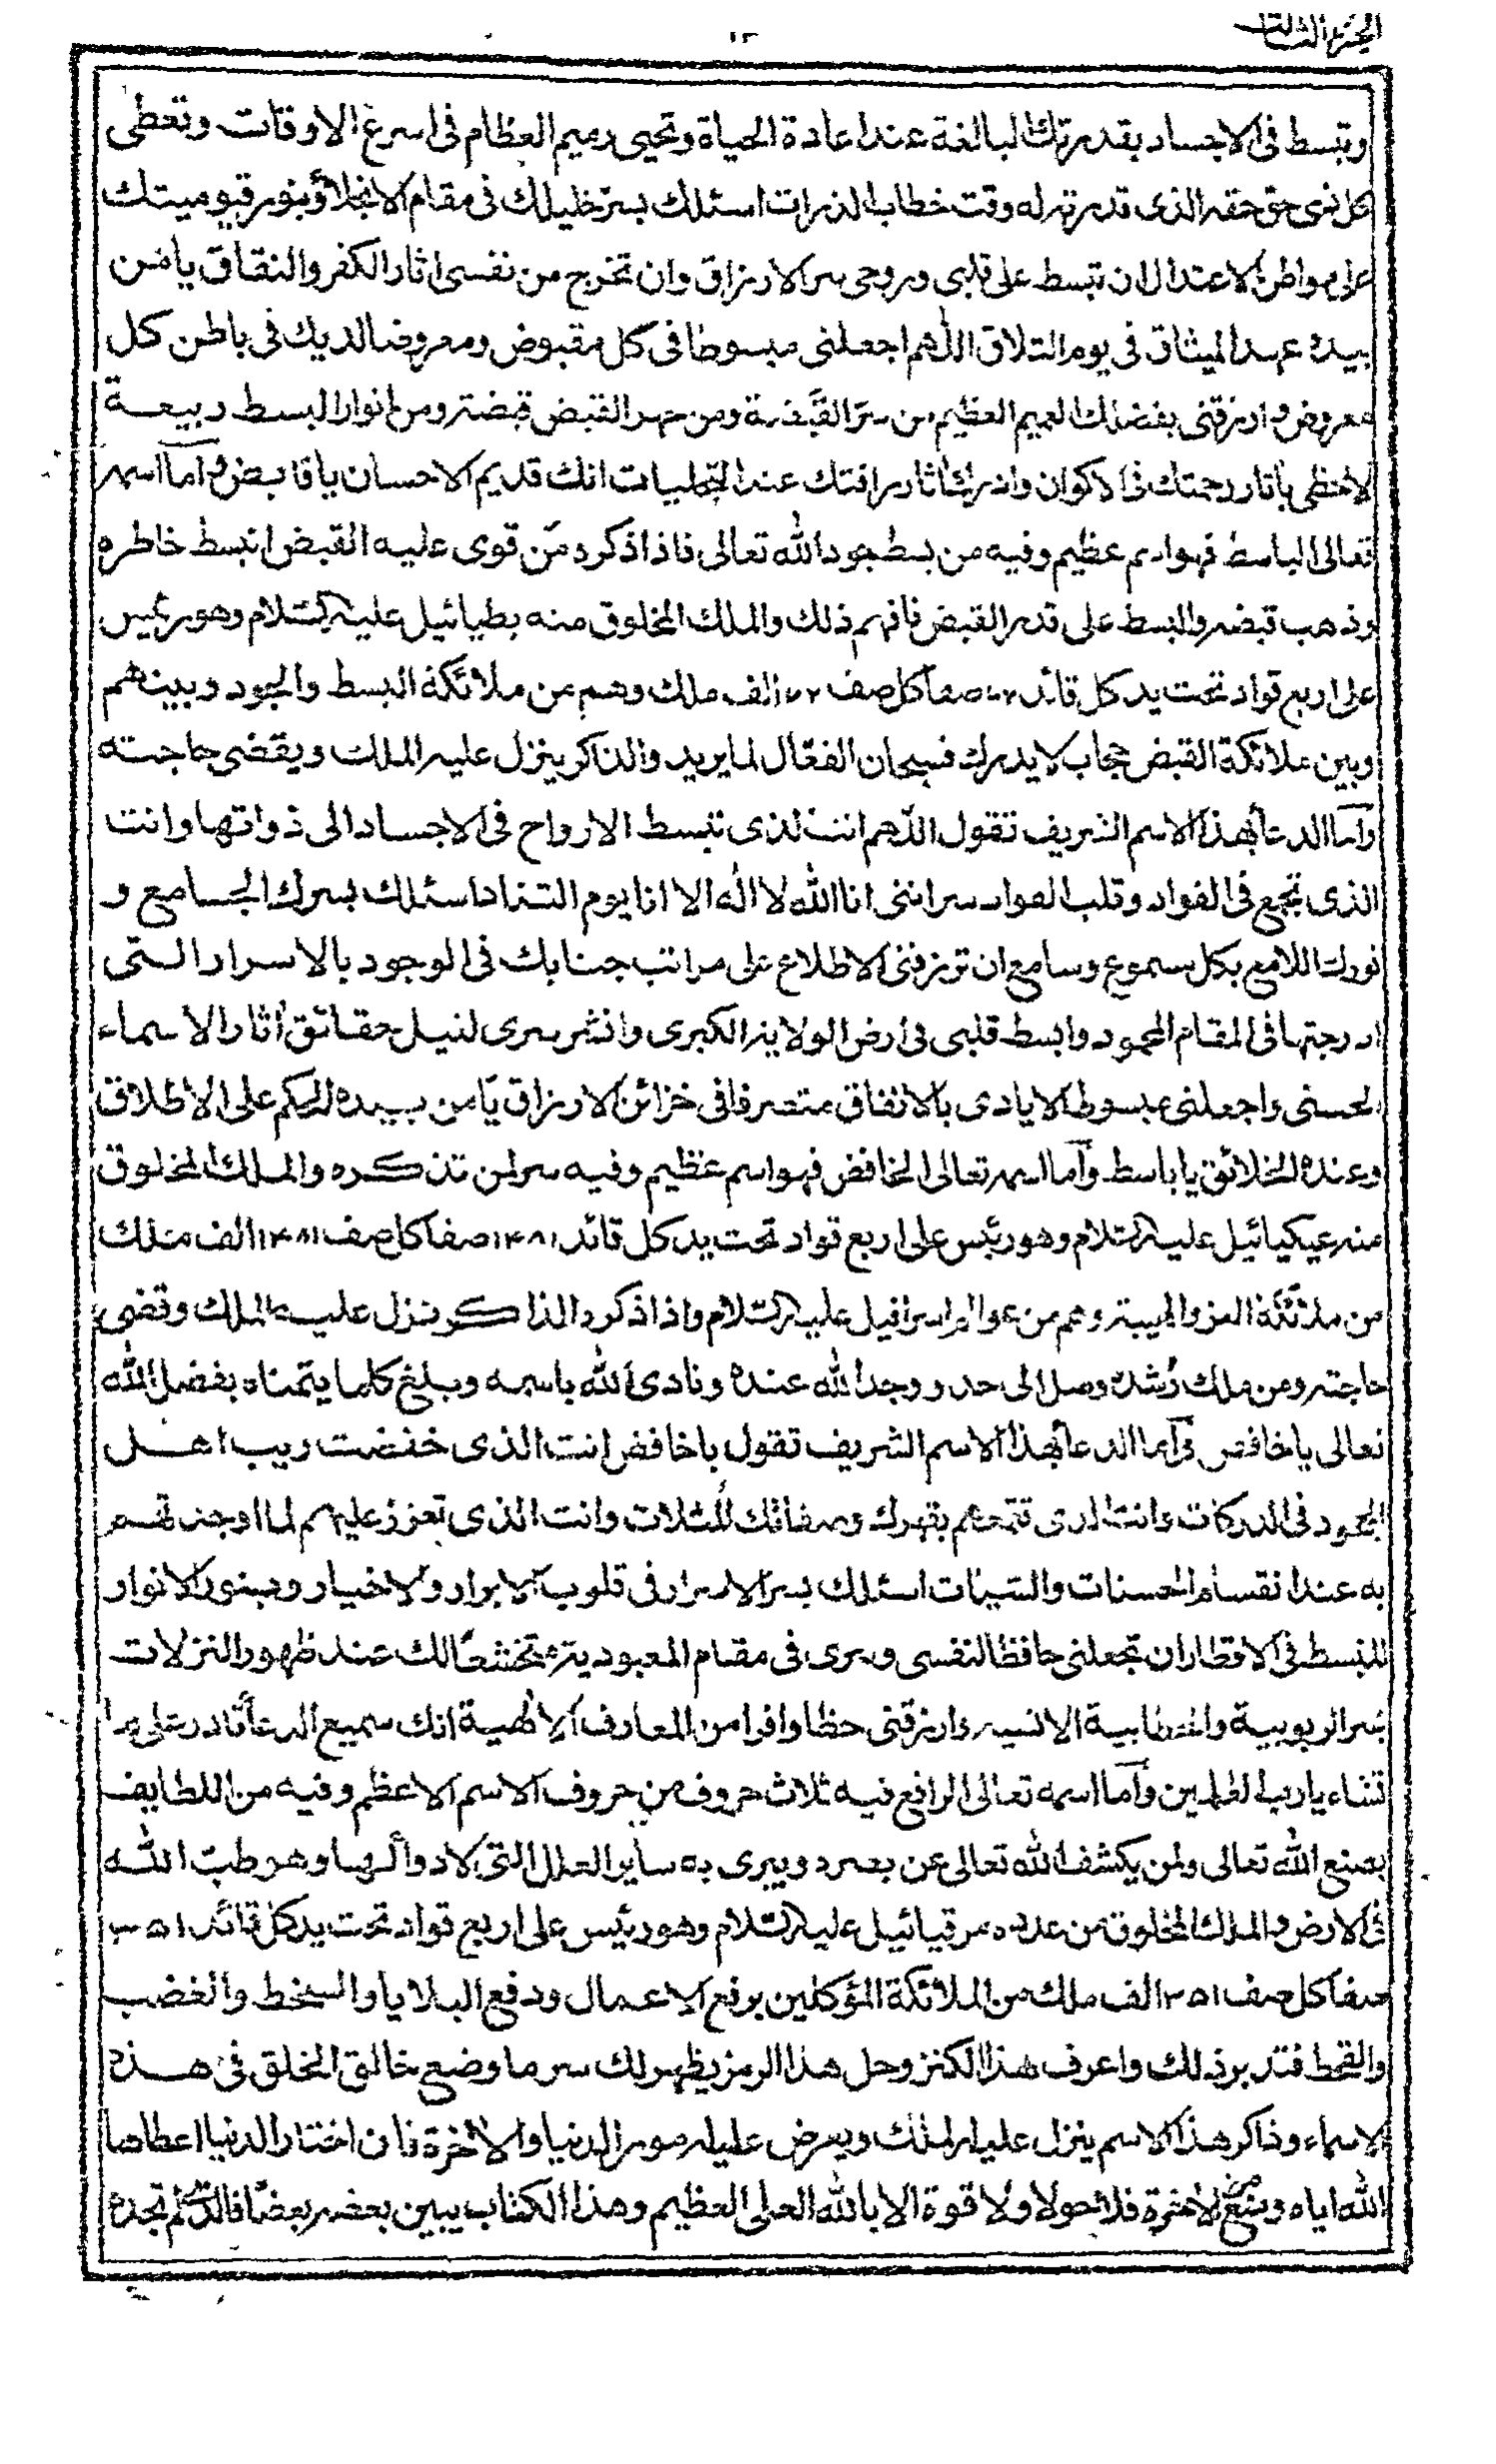 الجزء الثالث
١٣
وتبسط فى الاجساد بقدرتك البالغة عند اعادة الحياة وتحيى رميم العظام فى اسرع الاوقات وتعطى
كل ذى حق حقه الذى قدرته له وقت خطاب الذرات اسئلك بسر خليلك فى مقام الانجلاؤ بنور قيوميتك
على مواطن الاعتدال ان تبسط على قلبى وروحى سر الارزاق وان تخرج من نفسى اثار الكفر والنفاق يا من
بيده عهد الميثاق فى يوم التلاق اللهم اجعلنى مبسوطا فى كل مقبوض ومعروضا لديك فى باطن كل
معروض وارزقنى بفضلك العميم العظيم من سر القبضة ومن القبض قبضة ومن انوار البسط ربيعة
لاحظى باثار رحمتك فى الاكوان واثار رافتك عند التجليات انك قديم الاحسان يا قابض واما اسمه
تعالى الباسط فهو اسم عظيم وفيه من بسط جود الله تعالى فاذا ذكره من قوى عليه القبض انبسط خاطره
وذهب قبضه والبسط على قدر القبض فافهم ذلك والملك المخلوق منه بطيائيل عليه السلام وهو رئيس
على اربع قواد تحت يد كل قائد ٧٢ صفا كل صف ٧٢ الف ملك وهم من ملائكة البسط والجود وبينهم
وبين ملائكة القبض حجاب لا يدرك فسبحان الفعال لما يريد والذاكر ينزل عليه الملك ويقضى حاجته
واما الدعا بهذا الاسم الشريف تقول اللهم انت الذى تبسط الارواح فى الاجساد الى ذواتها وانت
الذى تجمع فى الفواد وقلب الفواد سر اننى انا الله لا اله الا انا يوم التناد اسئلك بسرك الجامع و
نورك اللامع بكل سموع وسامع ان ترزقنى الاطلاع على مراتب جنابك فى الوجود بالاسرار التى
ادرجتها فى المقام المحمود وابسط قلبى فى ارض الولاية الكبرى وانشر سرى لنيل حقائق اثار الاسماء
الحسنى واجعلنى مبسوط الايادى بالانفاق متصرفا فى خزائن الارزاق يا من بيده الحكم على الاطلاق
وعنده الخلائق يا باسط واما اسمه تعالى الخافض فهو اسم عظيم وفيه سر لمن تذكره والملك المخلوق
منه عيكيائيل عليه السلام وهو رئيس على اربع قواد تحت يد كل قائد ١٤٨١ صفا كل صف ١٤٨١ الف ملك
من ملائكة العز والهيبة وهم من عوالم اسرافيل عليه السلام واذا ذكره الذاكر نزل عليه الملك وقضى
حاجته ومن ملك رشده وصل الى حد ووجد الله عنده ونادى الله باسمه وبلغ كلما يتمناه بفضل الله
تعالى يا خافض واما الدعا بهذا الاسم الشريف تقول يا خافض انت الذى خفضت ريب اهل
الجحود فى الدركات وانت الذى بقهرك وصفاتك المثلات وانت الذى تعزز عليهم لما اوجدتهم
به عند انقسام الحسنات والسيئات اسئلك بسر الاسرار فى قلوب الابرار والاخيار وبنور الانوار
المنبسط فى الاقطار ان تجعلنى حافظا لنفسى وسرى فى مقام المعبودية متخشعا لك عند ظهور النزلات
بسر الربوبية الانسيه وارزقنى حظا وافرا من المعارف الالهية انك سميع الدعا قادر على ما
تشاء يا رب العلمين واما اسمه تعالى الرافع فيه ثلاث حروف من حروف الاسم الاعظم وفيه من اللطايف
بصنع الله تعالى ولمن يكشف الله تعالى عن بصره ويبرى به ساير العلل التى لا دوا لها وهو طب الله
فى الارض والملك المخلوق من عدده مرقيائيل عليه السلام وهو رئيس على اربع قواد تحت يد كل قائد ٣٥١
صفا كل صف ٣٥١ الف ملك من الملائكة المؤكلين برفع الاعمال ودفع البلايا والسخط والغضب
والقحط فتدبر ذلك واعرف هذا الكنز وحل هذا الرمز يظهر لك سر ما وضع خالق الخلق فى هذه
الاسماء وذاكر هذا الاسم ينزل عليه الملك ويعرض عليه صور الدنيا والاخرة فان اختار الدنيا اعطاها
الله اياه ومنع من الاخرة فلا حولا ولا قوة الا بالله العلى العظيم وهذا الكتاب يبين بعضه بعضا لم تجده